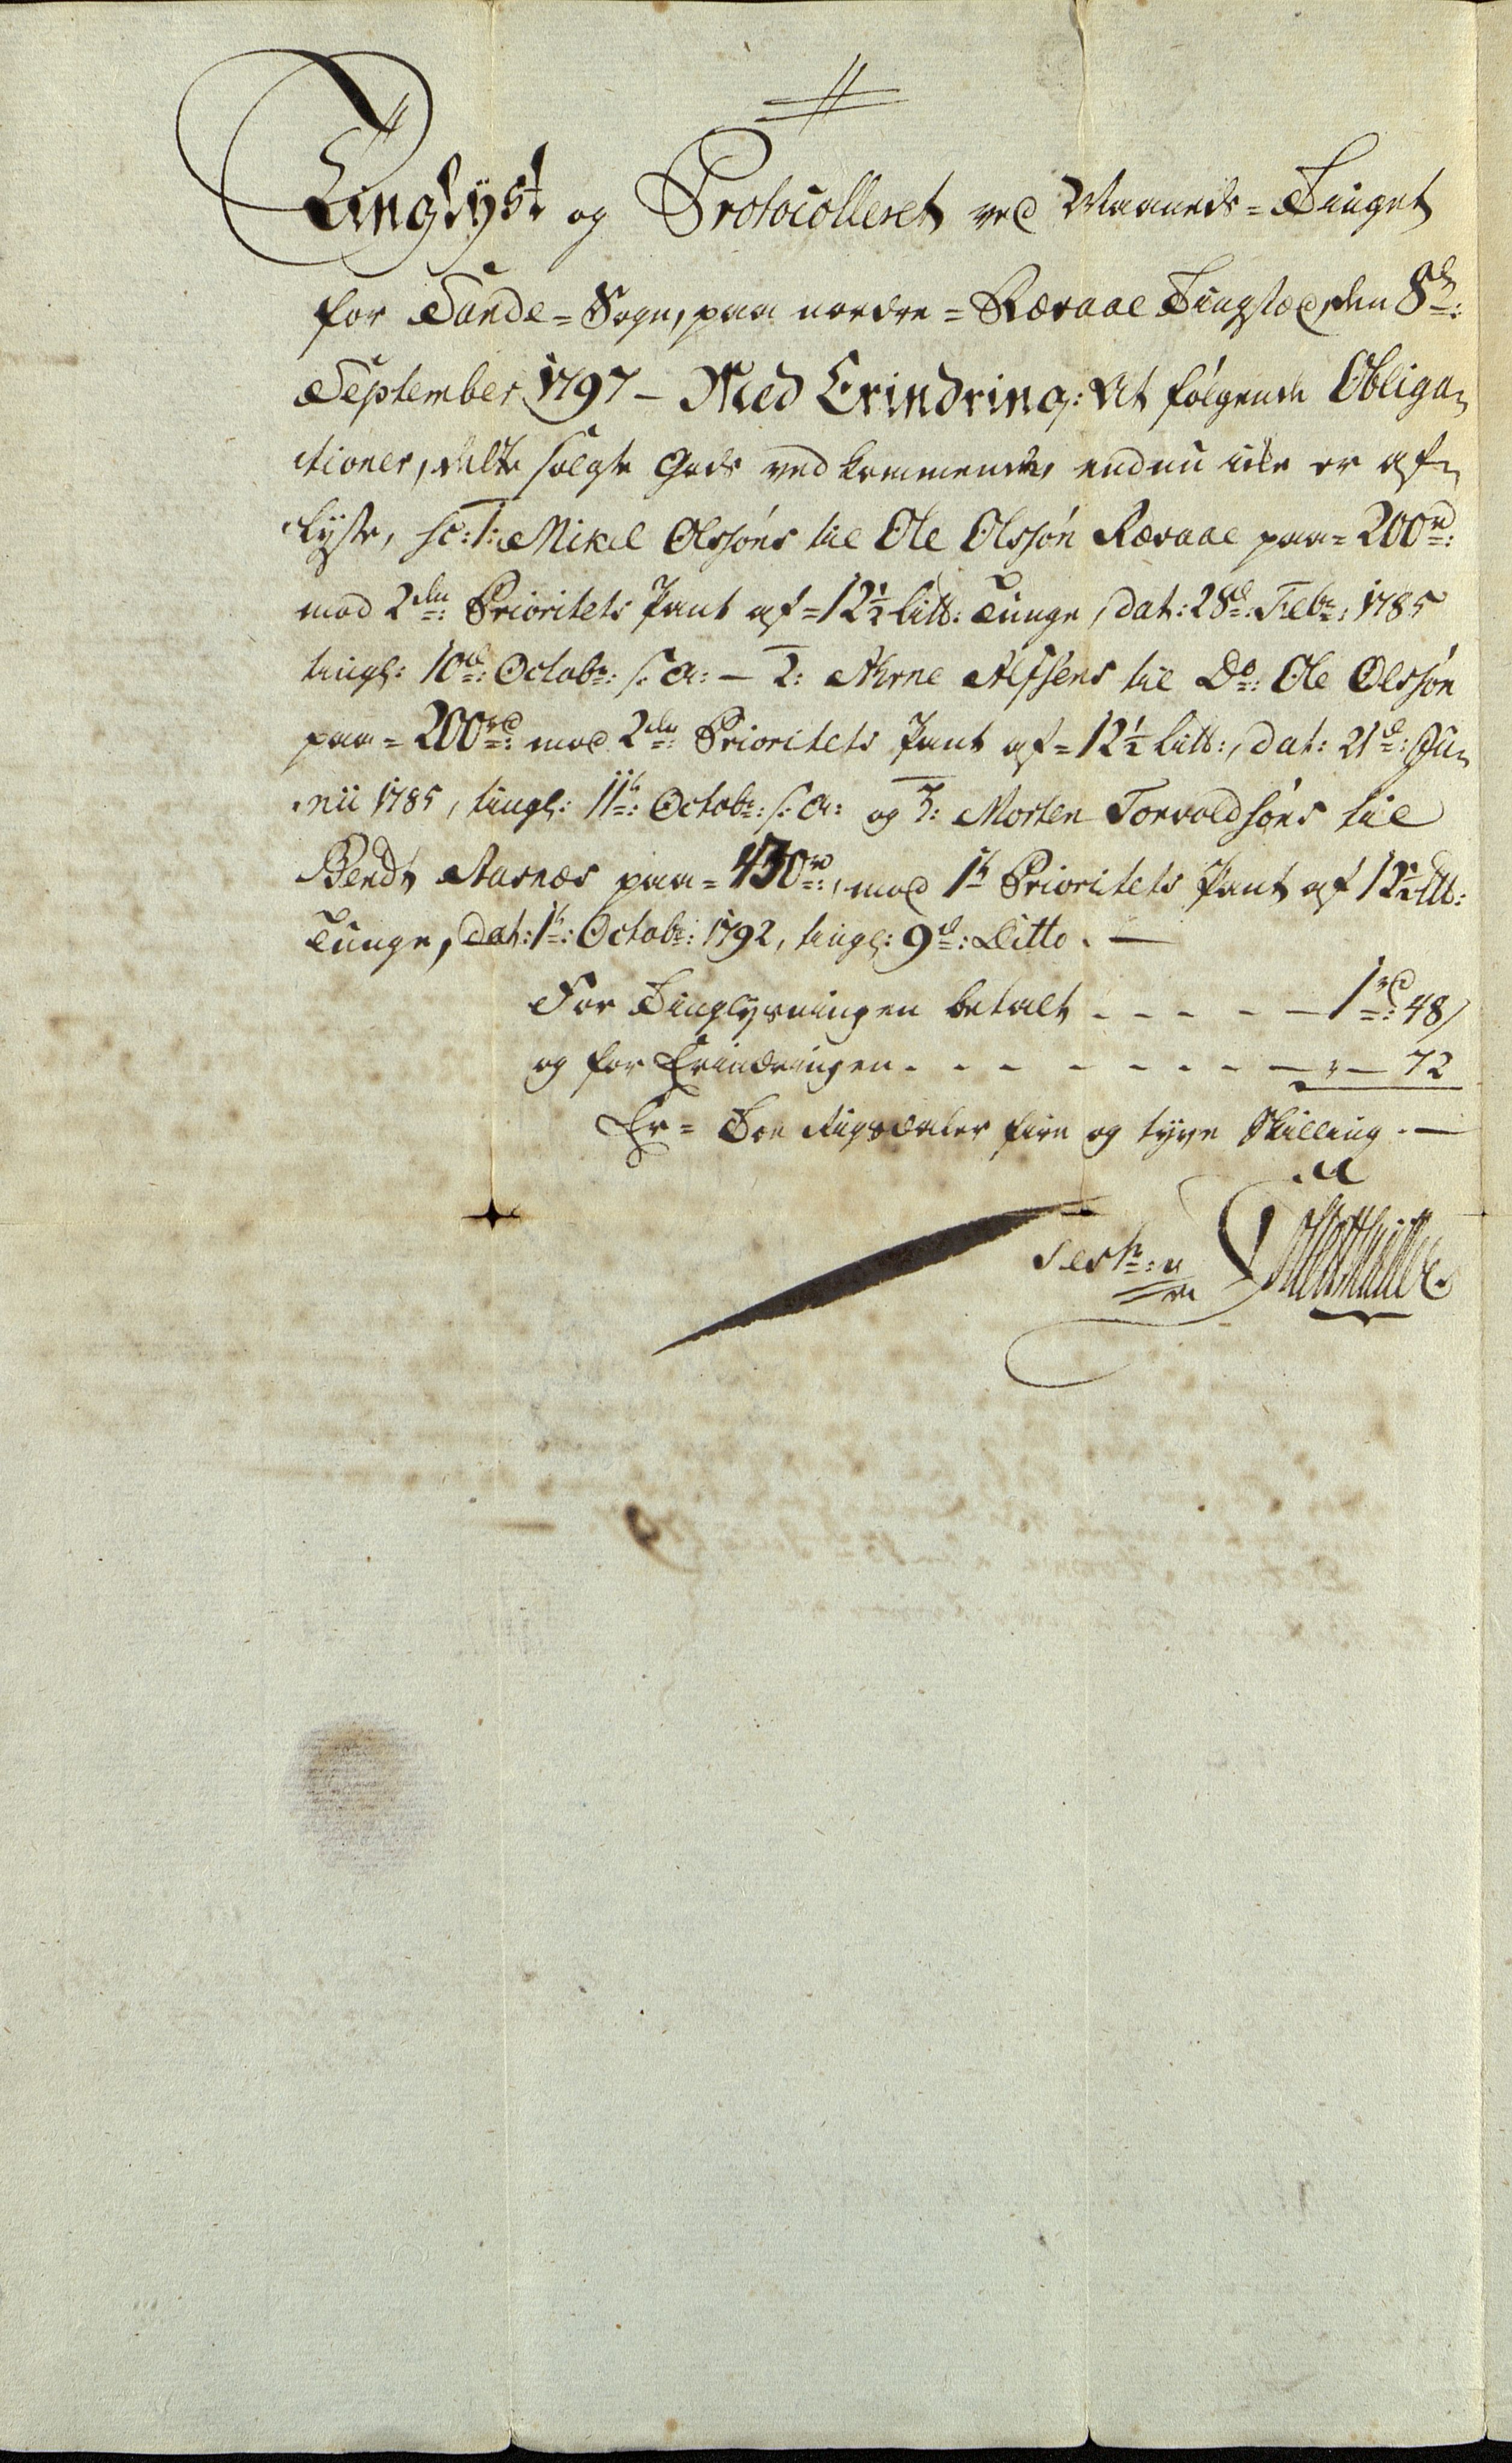 Tinglyst og Protocolleret ved Maaneds=Tinget
for Sande=Sogn, paa nordre=Rævaae Tingstæd, den 8de:
September 1797 – Med Erindring: At følgende Obliga-
tioner, dette solgte Gods vedkommende, endnu icke er af-
lyste, sc: 1: Mikel Olssøns til Ole Olssøn Rævaae paa=200rd:
mod 2den: Prioritets Pant af=12½ Litt: Tunge, dat: 28de: Febr: 1785
tingl: 10de: Octobr: s: a: – 2: Arne Alfsens til Do: Ole Olssøn
paa=200rd: mod 2den: Prioritets Pant af=12½ Litt:, dat: 21de: Ju-
nii 1785, tingl: 11te: Octobr: s: a: og 3: Morten Torvaldsøns til
Bendt Aarnæs paa=430rd:, mod 1te Prioritets Pant af 12½ Litt:
Tunge, dat: 1te: Octobr: 1792, tingl: 9de: Ditto. —
For Tinglysningen betalt - - - - - 1rd: 48/
og for Erindringen. - - - - - - - - - „ — 72
Er= Toe Rigsdaler fire og tyve Skilling. —